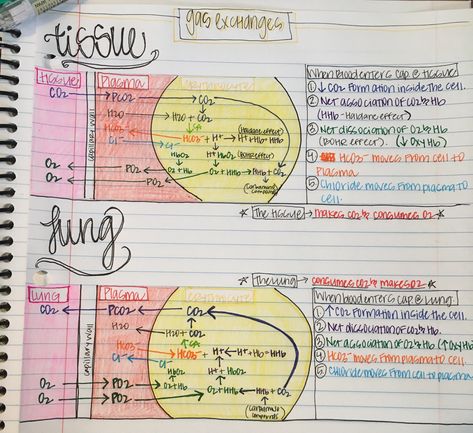 gas exchanges
tissue
tissue
Plasma
CO2
PCO2
CO2
H2O
H2O + CO2
CA
HCO3-
HCO3- + H+
H+ + Hb
HHb
(Haldane effect)
Cl-
Cl-
capillary wall
HbO2
H+ + HbO2
(Bohr effect)
O2
O2
O2 + Hb
O2 + HHb
HHb + CO2
PO2
(carbamino compounds)
When blood enters cap @ tissue
① ↓ CO2 formation inside the cell.
② Net association of CO2 & Hb
(HHb - Haldane effect)
③ Net dissociation of O2 & Hb
(Bohr effect). (↓ Oxy Hb)
④ HCO3- moves from cell to
plasma
⑤ Chloride moves from plasma to
cell.
* The tissue → makes CO2 & consumes O2 *
lung
* The lung → consumes CO2 & makes O2 *
lung
Plasma
CO2
PCO2
CO2
H2O
H2O + CO2
CA
HCO3-
HCO3- + H+
H+ + Hb
HHb
Cl-
Cl-
capillary wall
HbO2
H+ + HbO2
O2
PO2
O2 + Hb
O2
PO2
O2 + HHb
HHb + CO2
(carbamino compounds)
When blood enters cap @ lung
① ↑ CO2 formation inside the cell.
② Net dissociation of CO2 & Hb.
③ Net association of O2 & Hb (↑ Oxy Hb)
④ HCO3- moves from plasma to cell.
⑤ Chloride moves from cell to plasma